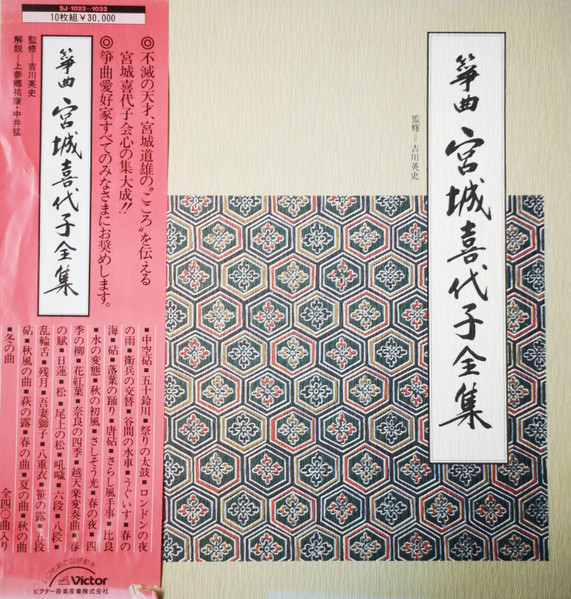 SJ-1023~1032
10枚組¥30,000
◎不滅の天才、宮城道雄の“こころ”を伝える
宮城喜代子会心の集大成!!
◎箏曲愛好家すべてのみなさまにお奨めします。
箏曲 宮城喜代子全集
監修=吉川英史
解説=上参郷祐康・中井猛
■中空砧■五十鈴川■祭りの太鼓■ロンドンの夜
の雨■衛兵の交替■谷間の水車■うぐいす■春の
海■砧■落葉の踊り■唐砧■さらし風手事■比良
■水の変態■秋の初風■さしそう光■春の夜■四
季の柳■花紅葉■奈良の四季■越天楽変奏曲■春
の賦■日蓮■松■尾上の松■吼噦■六段■八段■
乱輪舌■残月■吾妻獅子■八重衣■笹の露■五段
砧■秋風の曲■萩の露■春の曲■夏の曲■秋の曲
■冬の曲
全四〇曲入り
Victor
ビクター音楽産業株式会社
箏曲 宮城喜代子全集
監修=吉川英史